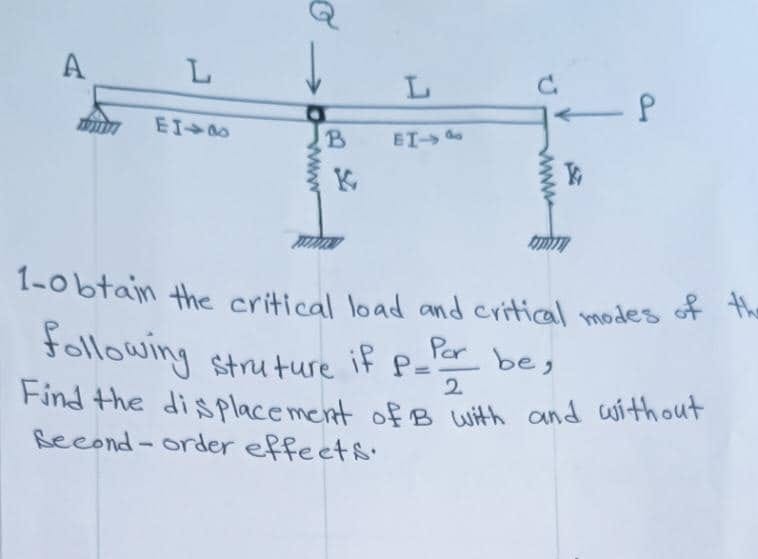 Q
A L L C P
EI→∞ B EI→∞
K K
1-Obtain the critical load and critical modes of the
following struture if P=Pcr/2 be,
Find the displacement of B with and without
Second-order effects.